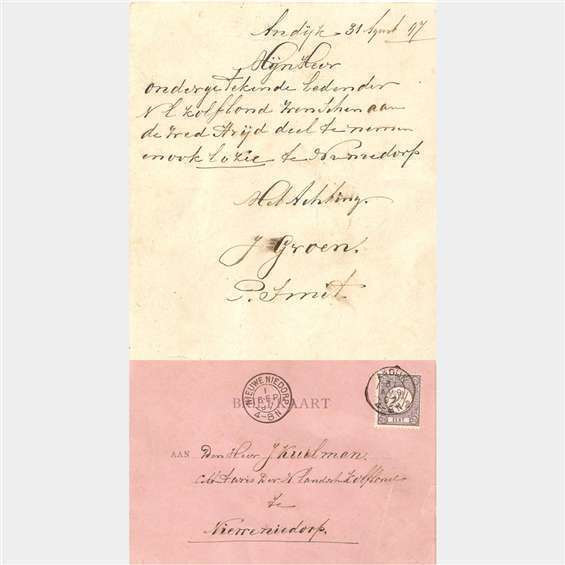 Andijk 31 Agust 97
Mijn Heer
ondergetekinde Ledender
N L Kolfbond Wenschen aan
de Wed Strijd deel te nemen
en ook Lozie te N. niedorp
Met Achting.
J Groen.
P. Smit
NIEUWE NIEDORP
1
SEP
4-8N
CENT
AAN Den Heer J Kuilman.
der N landsch Kolfbond
te
Nieweniedorp.